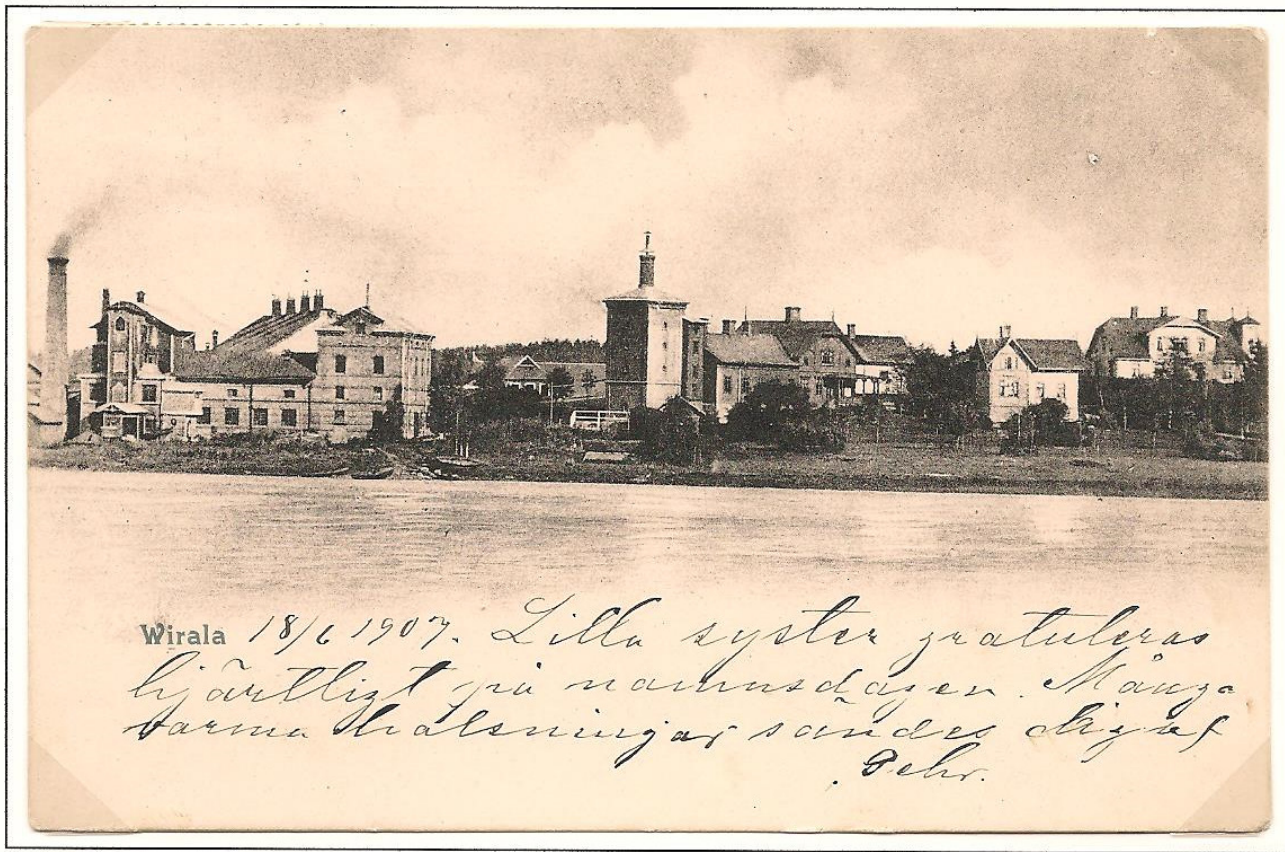 Wirala 18/6 1907. Lilla syster gratuleras
hjärtligt på namnsdagen. Många
varma hälsningar sändes dig af
Pehr.